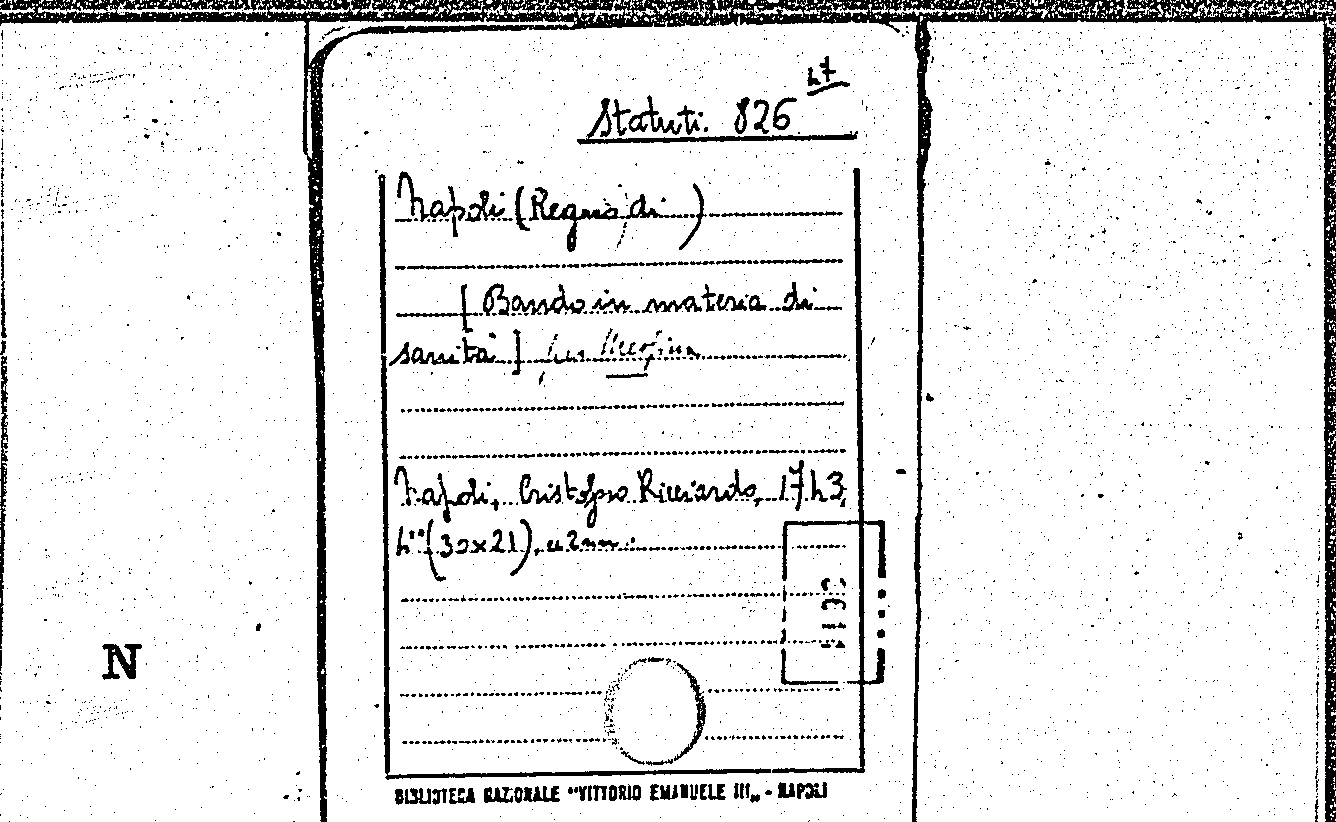 47
Statuti. 826
Napoli (Regno di)
[Bando in materia di
sanità]
Napoli, Cristofaro Ricciardo, 1743,
4° (30x21), cc 2 nn.
N
BIBLIOTECA NAZIONALE "VITTORIO EMANUELE III„ - NAPOLI